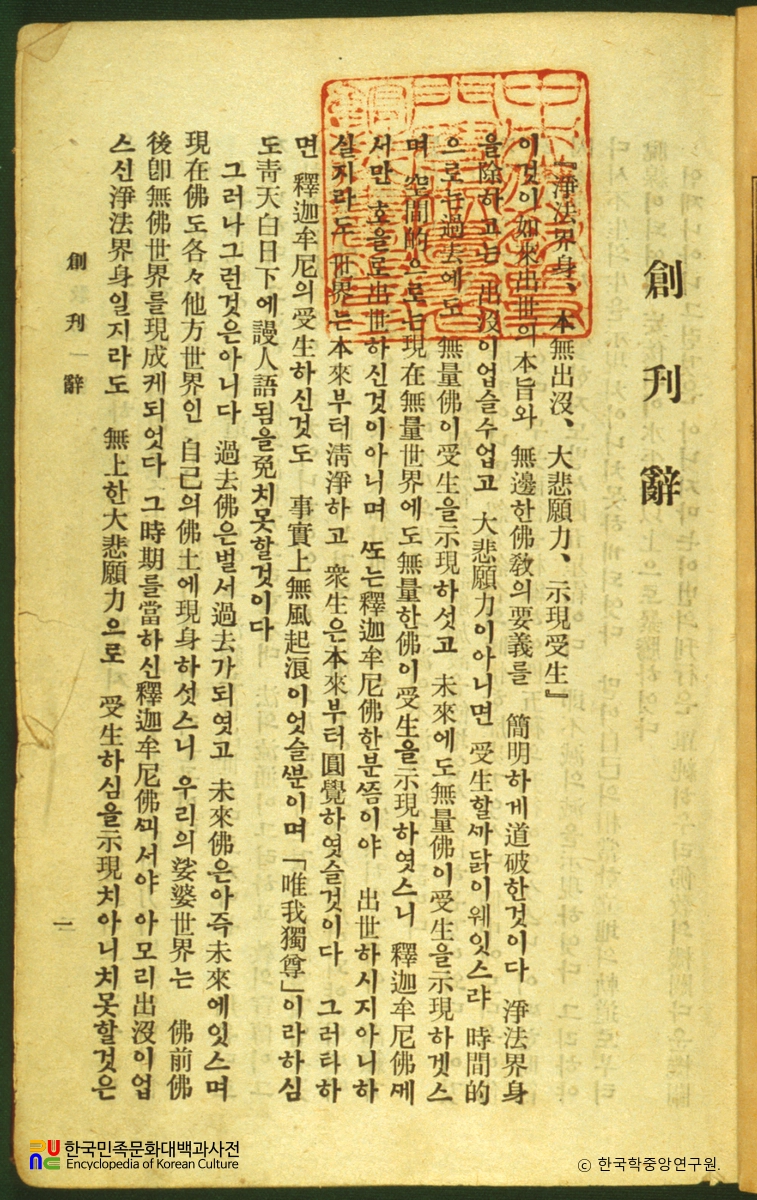 創刊辭
『淨法界身、本無出沒、大悲願力、示現受生』
이것이如來出世의本旨와 無邊한佛敎의要義를 簡明하게道破한것이다 淨法界身
을除하고는 出沒이업슬수업고 大悲願力이아니면 受生할ᄭᅡ닭이웨잇스랴 時間的
으로는過去에도 無量佛이受生을示現하섯고 未來에도無量佛이受生을示現하겟스
며 空間的으로는現在無量世界에도無量한佛이受生을示現하엿스니 釋迦牟尼佛ᄭᅦ
서만 호을로出世하신것이아니며 ᄯᅩ는釋迦牟尼佛한분ᄯᅳᆷ이야 出世하시지아니하
실지라도 世界는本來부터淸淨하고 衆生은本來부터圓覺하엿슬것이다 그러타하
면 釋迦牟尼의受生하신것도 事實上無風起浪이엇슬ᄲᅮᆫ이며「唯我獨尊」이라하심
도靑天白日下에謾人語됨을免치못할것이다
그러나그런것은아니다 過去佛은벌서過去가되엿고 未來佛은아즉未來에잇스며
現在佛도各々他方世界인 自己의佛土에現身하섯스니 우리의娑婆世界는 佛前佛
後卽無佛世界를現成케되엇다 그時期를當하신釋迦牟尼佛ᄭᅴ서야 아모리出沒이업
스신淨法界身일지라도 無上한大悲願力으로 受生하심을示現치아니치못할것은
創刊辭
一
한국민족문화대백과사전
Encyclopedia of Korean Culture
ⓒ 한국학중앙연구원.